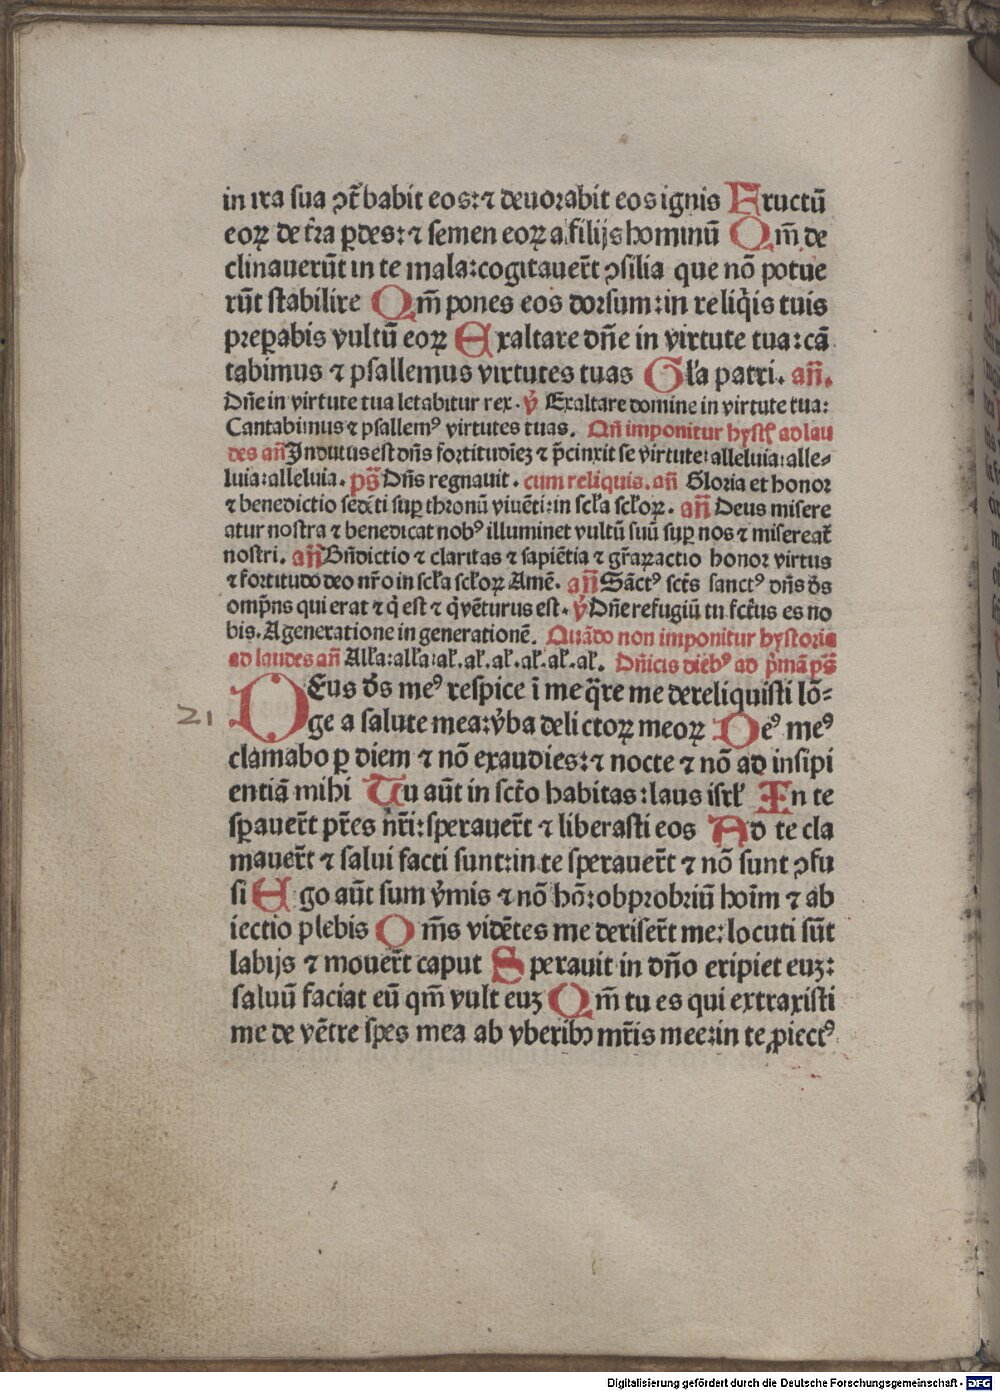 in ira sua ꝯt̄babit eos:⁊ deuorabit eos ignis Fructū
eoꝝ de t̄ra ꝑdes:⁊ semen eoꝝ a filijs hominū Qm̄ de
clinauerūt in te mala:cogitauer̄t ꝯsilia que nō potue
rūt stabilire Qm̄ pones eos dorsum:in reliq̄is tuis
preꝑabis vultū eoꝝ Exaltare dn̄e in virtute tua:cā
tabimus ⁊ psallemus virtutes tuas Gl̄a patri. an̄.
Dn̄e in virtute tua letabitur rex. ꝟ Exaltare domine in virtute tua:
Cantabimus ⁊ psallemꝰ virtutes tuas. Qn̄ imponitur hyst̄ ad lau
des an̄ Indutus est dn̄s fortitudīez ⁊ p̄cinxit se virtute:alleluia:alle⸗
luia:alleluia. ps̄ Dn̄s regnauit. cum reliquis. an̄ Gloria et honor
⁊ benedictio sedēti suꝑ thronū viuēti:in scl̄a scl̄oꝝ. an̄ Deus misere
atur nostra ⁊ benedicat nobꝰ illuminet vultū suū suꝑ nos ⁊ misereat̄
nostri. an̄ Bn̄dictio ⁊ claritas ⁊ sapiētia ⁊ gr̄aꝝactio honor virtus
⁊ fortitudo deo nr̄o in scl̄a scl̄oꝝ Amē. an̄ Sāctꝰ sct̄s sanctꝰ dn̄s d̄s
omp̄ns qui erat ⁊ q̄ est ⁊ q̄ vēturus est. ꝟ Dn̄e refugiū tu fct̄us es no
bis. A generatione in generationē. Quādo non imponitur hystoria
ad laudes an̄ All̄a:all̄a:al̄. al̄. al̄. al̄. al̄. al̄. Dn̄icis diebꝰ ad p̄mā ps̄
DEus d̄s meꝰ respice ī me q̄re me dereliquisti lō⸗
21 ge a salute mea:v̄ba delictoꝝ meoꝝ Deꝰ meꝰ
clamabo ꝑ diem ⁊ nō exaudies:⁊ nocte ⁊ nō ad insipi
entiā mihi Tu aūt in sct̄o habitas:laus isrl̄ In te
sꝑauer̄t pr̄es nr̄i:sperauer̄t ⁊ liberasti eos Ad te cla
mauer̄t ⁊ salui facti sunt:in te sperauer̄t ⁊ nō sunt ꝯfu
si Ego aūt sum v̄mis ⁊ nō hō:obprobriū hoīm ⁊ ab
iectio plebis Om̄s vidētes me deriser̄t me:locuti sūt
labijs ⁊ mouer̄t caput Sperauit in dn̄o eripiet euꝫ:
saluū faciat eū qm̄ vult euꝫ Qm̄ tu es qui extraxisti
me de vētre spes mea ab vberibꝰ mr̄is mee:in te ꝓiectꝰ
Digitalisierung gefördert durch die Deutsche Forschungsgemeinschaft - DFG